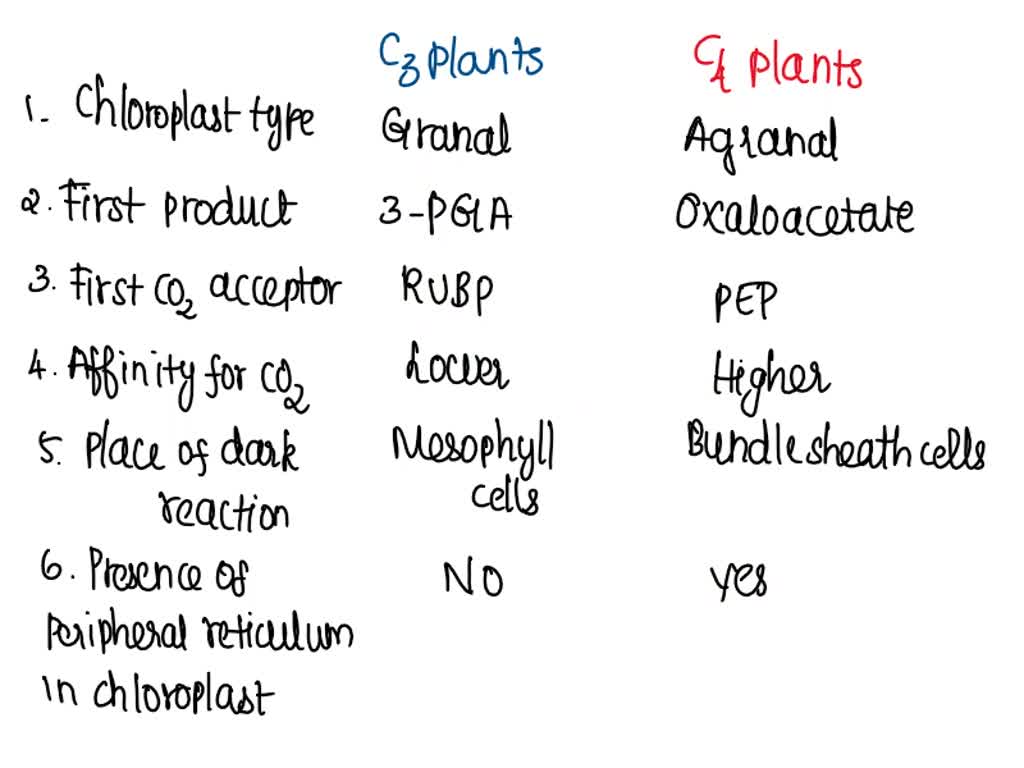 C3 plants C4 plants
1. Chloroplast type Granal Agranal
2. First product 3-PGA Oxaloacetate
3. First CO2 acceptor RUBP PEP
4. Affinity for CO2 Lower Higher
5. Place of dark Mesophyll Bundle sheath cells
reaction cells
6. Presence of NO yes
Peripheral reticulum
in chloroplast